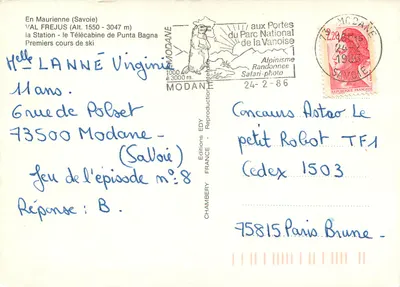 En Maurienne (Savoie)
VAL FREJUS (Alt. 1550 - 3047 m)
la Station - le Télécabine de Punta Bagna
Premiers cours de ski
Melle LANNÉ Virginie
11 ans.
6 rue de Polset
73500 Modane -
(Savoie)
Jeu de l'épisode n°8
Réponse : B.
MODANE
1000 à
2000 m
MODANE
aux Portes
du Parc National
de la Vanoise
Alpinisme
Randonnée
Safari-photo
24-2-86
MODANE
SAVOIE
Editions EDY
CHAMBERY FRANCE - Reproduction
Concours Astro Le
petit Robot TF1
Cedex 1503
75815 Paris Brune -